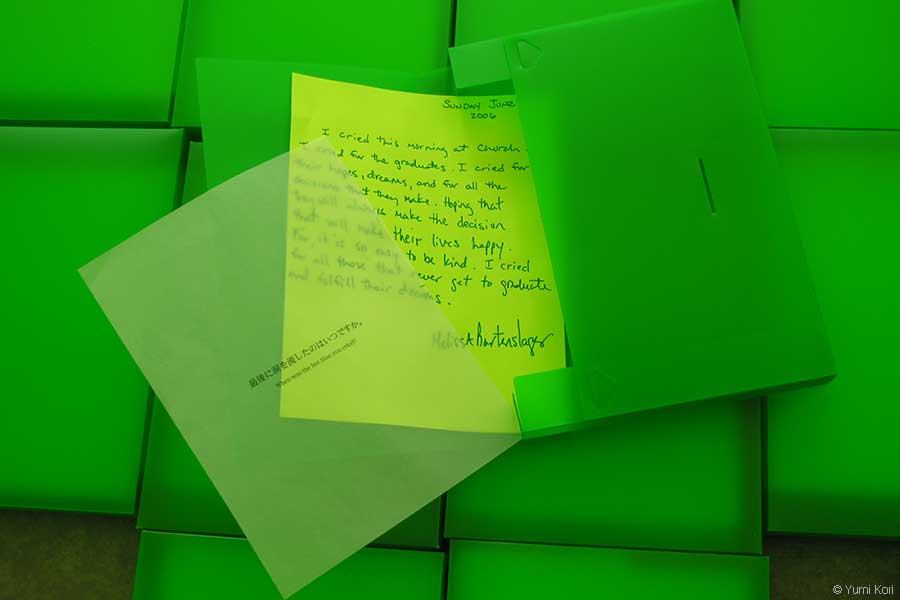 SUNDAY JUNE
2006
I cried this morning at church -
I cried for the graduates. I cried for
their hopes, dreams, and for all the
decisions that they make. Hoping that
they will always make the decision
that will make their lives happy.
For, it is so easy to be kind. I cried
for all those that never get to graduate
and fulfill their dreams.
Melissa Bartenslager
最後に涙を流したのはいつですか。
When was the last time you cried?
© Yumi Kori